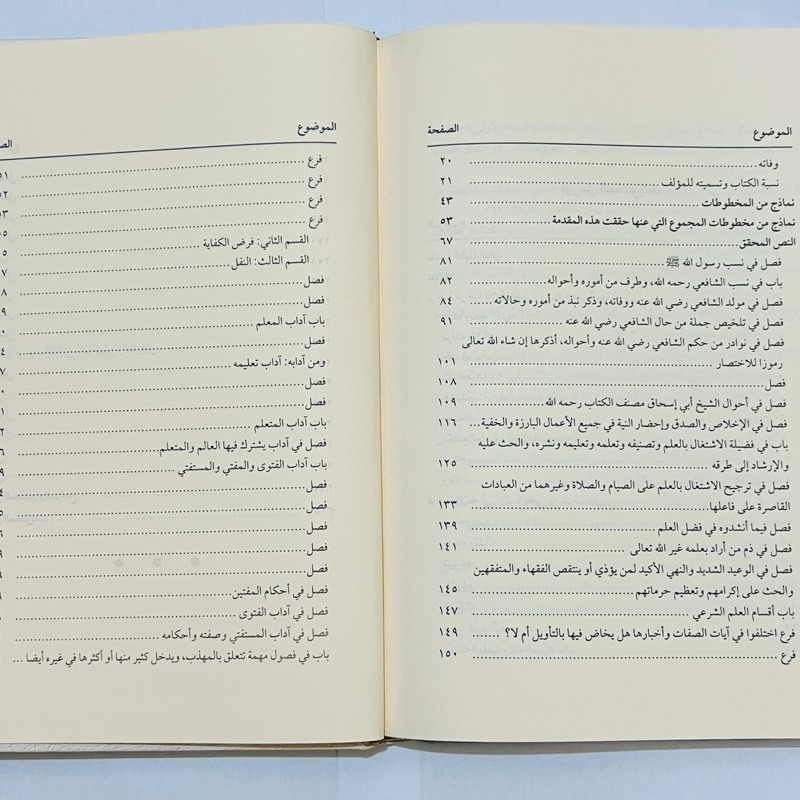 الموضوع الصفحة
وفاته ٢٠
نسبة الكتاب وتسميته للمؤلف ٢١
نماذج من المخطوطات ٤٣
نماذج من مخطوطات المجموع التي عنها حققت هذه المقدمة ٥٣
النص المحقق ٦٧
فصل في نسب رسول الله ﷺ ٨١
باب في نسب الشافعي رحمه الله، وطرف من أموره وأحواله ٨٢
فصل في مولد الشافعي رضي الله عنه ووفاته، وذكر نبذ من أموره وحالاته ٨٤
فصل في تلخيص جملة من حال الشافعي رضي الله عنه ٩١
فصل في نوادر من حكم الشافعي رضي الله عنه وأحواله، أذكرها إن شاء الله تعالى
رموزا للاختصار ١٠١
فصل ١٠٨
فصل في أحوال الشيخ أبي إسحاق مصنف الكتاب رحمه الله ١٠٩
فصل في الإخلاص والصدق وإحضار النية في جميع الأعمال البارزة والخفية ١١٦
باب في فضيلة الاشتغال بالعلم وتصنيفه وتعلمه وتعليمه ونشره، والحث عليه
والإرشاد إلى طرقه ١٢٥
فصل في ترجيح الاشتغال بالعلم على الصيام والصلاة وغيرهما من العبادات
القاصرة على فاعلها ١٣٣
فصل فيما أنشدوه في فضل العلم ١٣٩
فصل في ذم من أراد بعلمه غير الله تعالى ١٤١
فصل في الوعيد الشديد والنهي الأكيد لمن يؤذي أو ينتقص الفقهاء والمتفقهين
والحث على إكرامهم وتعظيم حرماتهم ١٤٥
باب أقسام العلم الشرعي ١٤٧
فرع اختلفوا في آيات الصفات وأخبارها هل يخاض فيها بالتأويل أم لا؟ ١٤٩
فرع ١٥٠
الموضوع
فرع
فرع
فرع
فرع
القسم الثاني: فرض الكفاية
القسم الثالث: النفل
فصل
فصل
باب آداب المعلم
فصل
ومن آدابه: آداب تعليمه
فصل
فصل
باب آداب المتعلم
فصل في آداب يشترك فيها العالم والمتعلم
باب آداب الفتوى والمفتي والمستفتي
فصل
فصل
فصل
فصل
فصل
فصل في أحكام المفتين
فصل في آداب الفتوى
فصل في آداب المستفتي وصفته وأحكامه
باب في فصول مهمة تتعلق بالمهذب، ويدخل كثير منها أو أكثرها في غيره أيضا ...